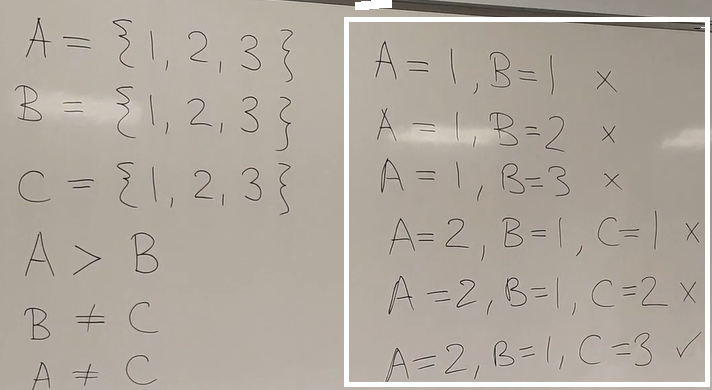 A = {1, 2, 3}
B = {1, 2, 3}
C = {1, 2, 3}
A > B
B ≠ C
A ≠ C
A = 1, B = 1 ×
A = 1, B = 2 ×
A = 1, B = 3 ×
A = 2, B = 1, C = 1 ×
A = 2, B = 1, C = 2 ×
A = 2, B = 1, C = 3 ✓